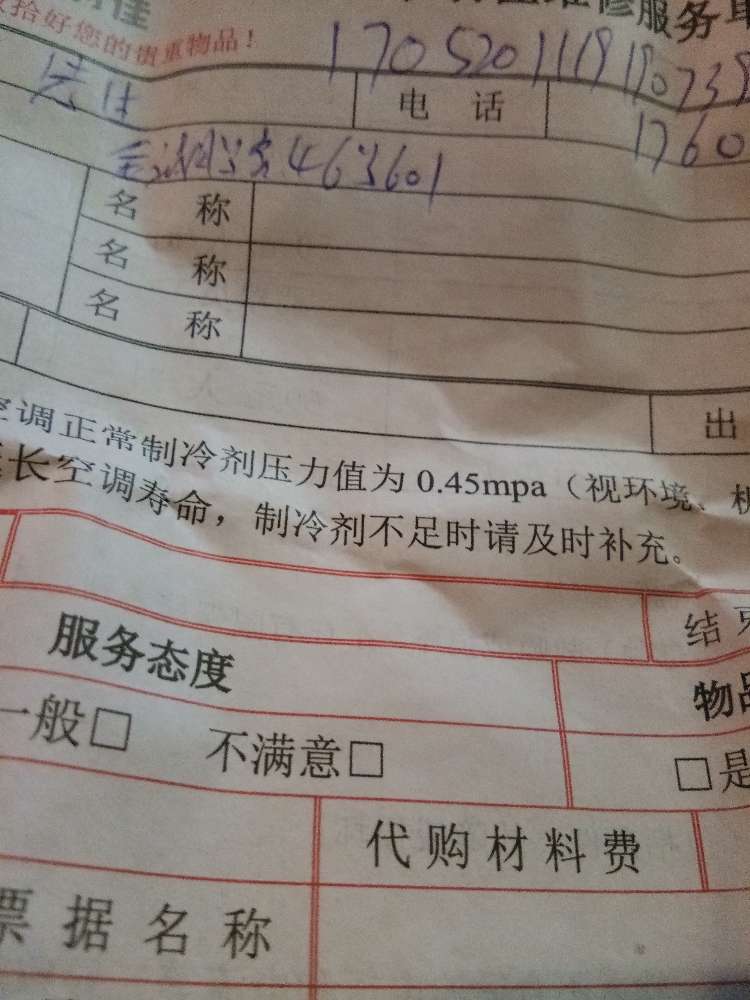 拾好您的贵重物品！
维修服务单
17052011191907398
电 话
1760
463601
名 称
名 称
名 称
出
空调正常制冷剂压力值为 0.45mpa（视环境、机
延长空调寿命，制冷剂不足时请及时补充。
结束
服务态度
物品
一般□ 不满意□
□是
代购材料费
票据名称